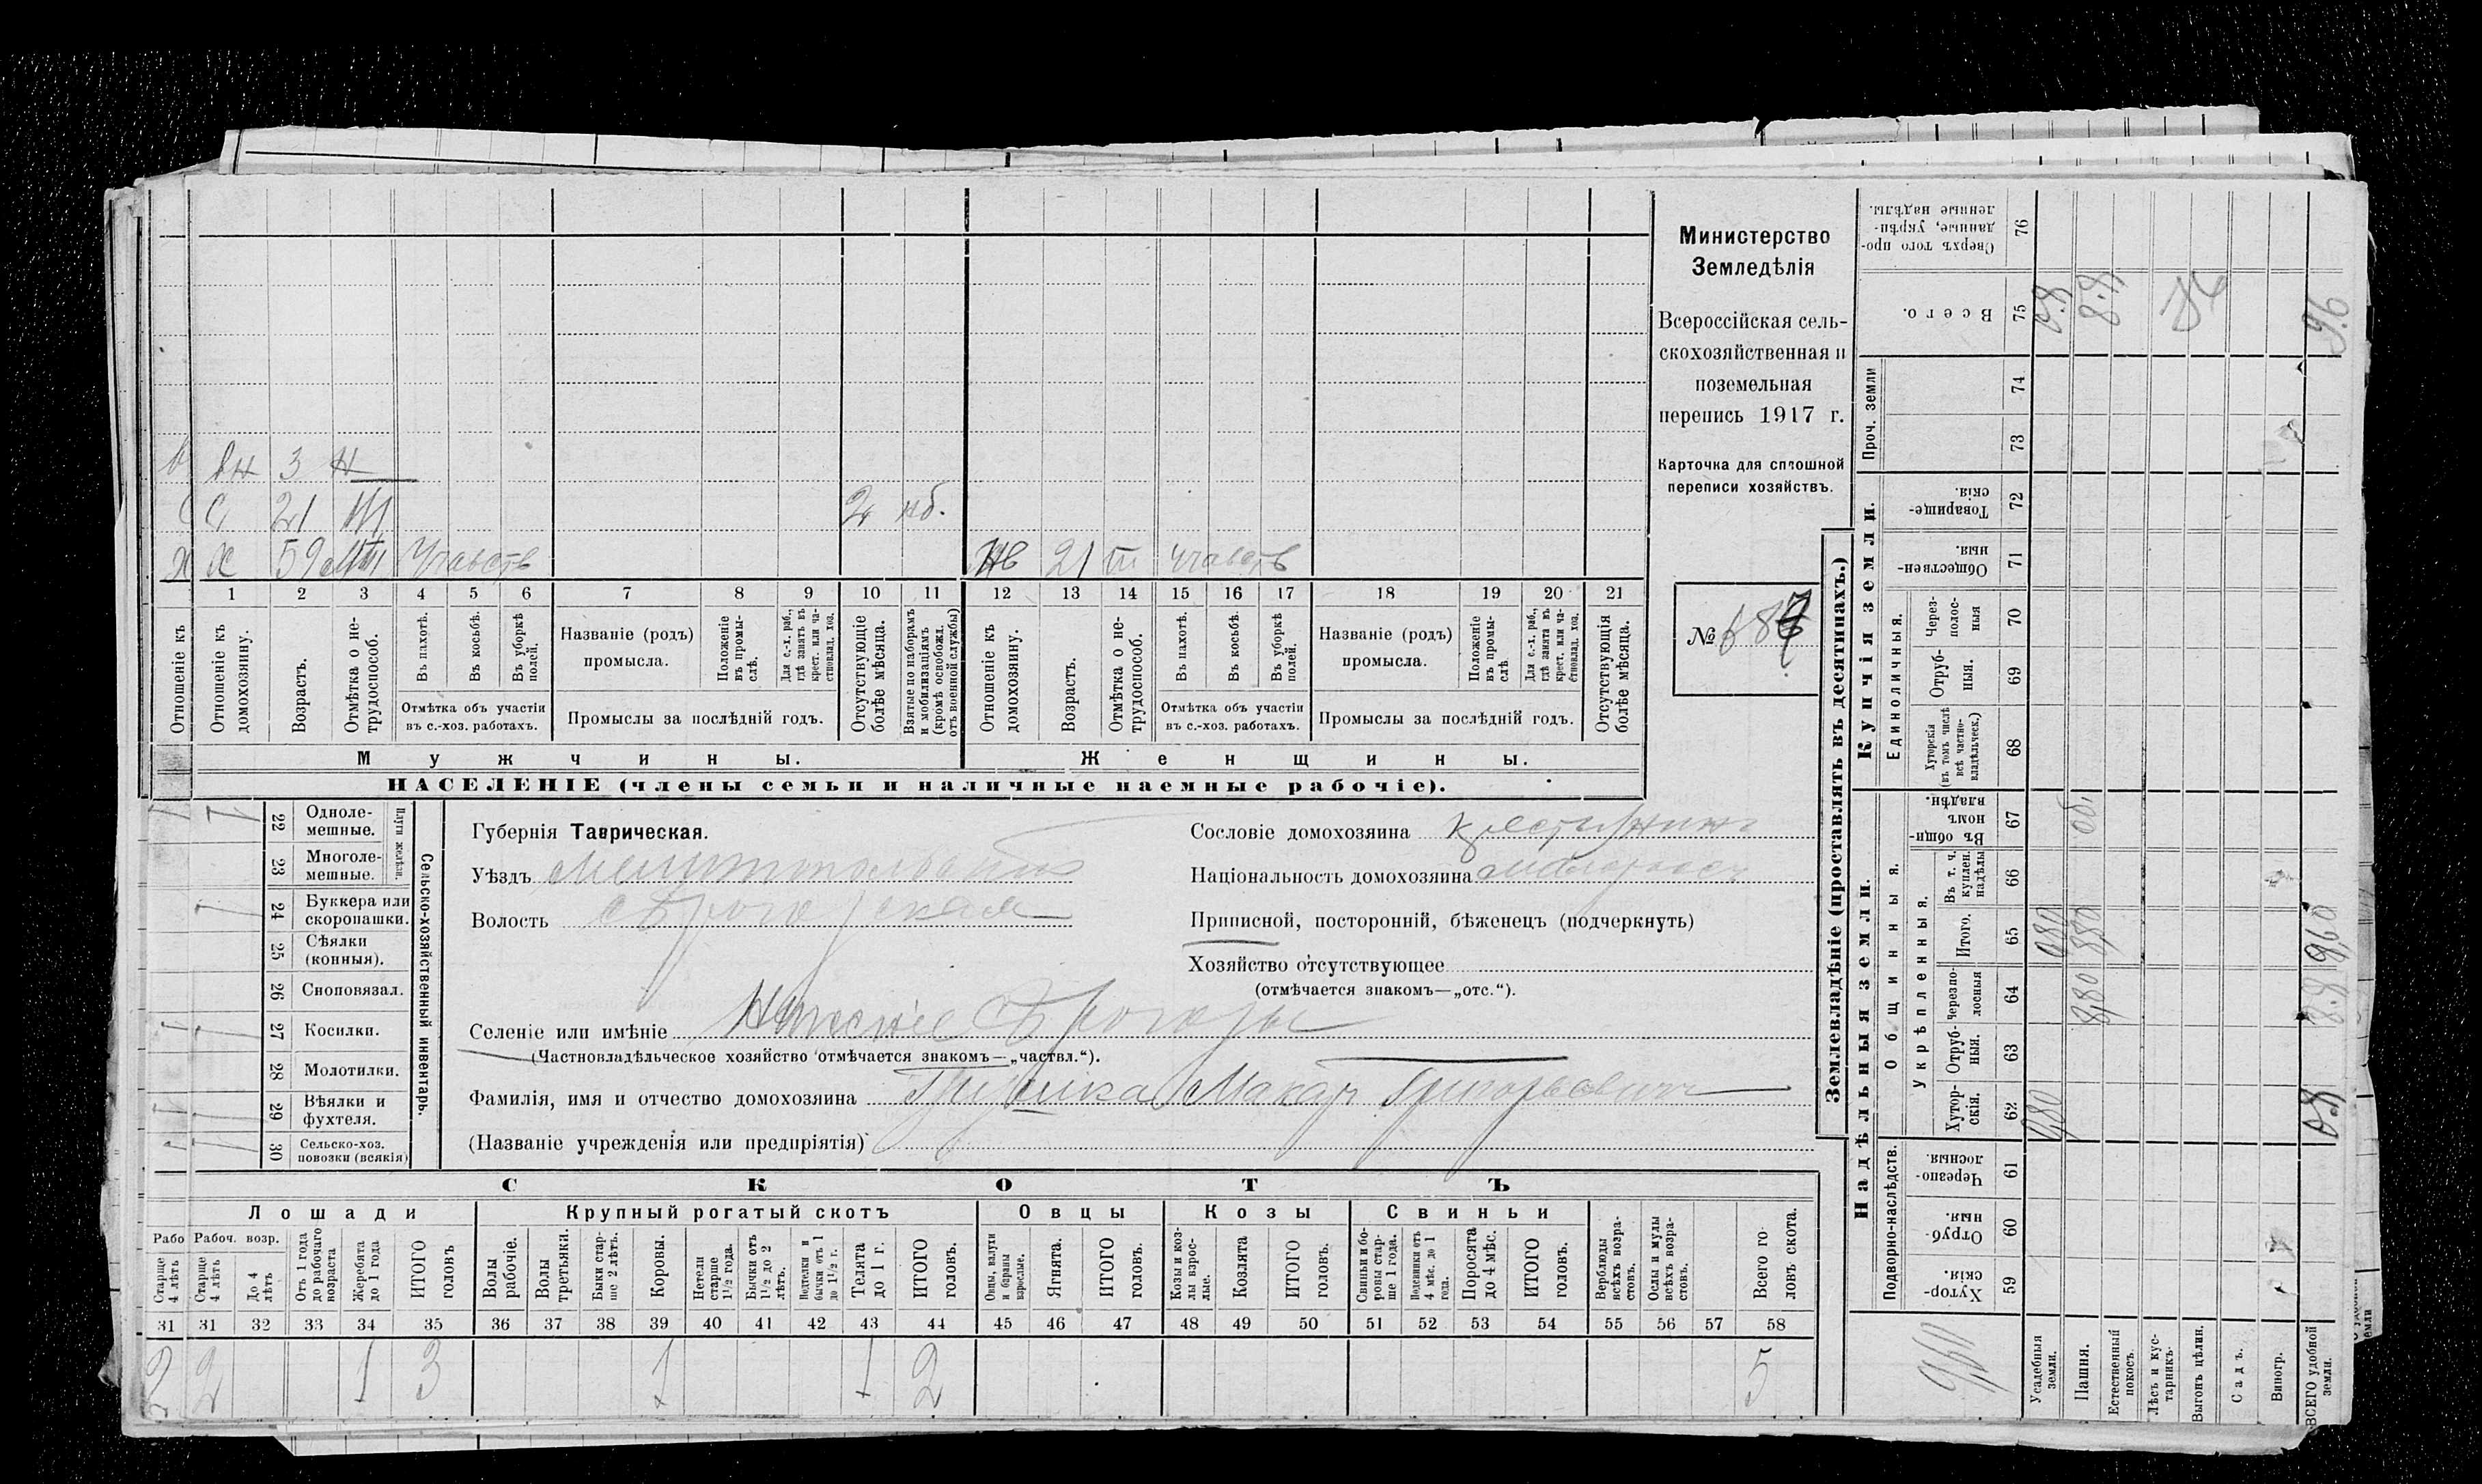 Министерство
Земледѣлія
Всероссійская сель-
скохозяйственная и
поземельная
перепись 1917 г.
Карточка для сплошной
переписи хозяйствъ.
№ 687
вн 3 н
С 21 2 нб.
х 59 участв нв 21 участв
1 2 3 4 5 6 7 8 9 10 11 12 13 14 15 16 17 18 19 20 21
Отношеніе къ
Отношеніе къ домохозяину.
Возрастъ.
Отмѣтка о не-трудоспособ.
Въ пахотѣ.
Въ косьбѣ.
Въ уборкѣ полей.
Отмѣтка объ участіи
въ с.-хоз. работахъ.
Названіе (родъ)
промысла.
Положеніе въ промы-слѣ.
Для с.-х. раб., гдѣ занятъ въ крест. или ча-стновлад. хоз.
Промыслы за послѣдній годъ.
Отсутствующіе болѣе мѣсяца.
Взятые по наборамъ и мобилизаціямъ (кромѣ освобожд. отъ военной службы)
Отношеніе къ домохозяину.
Возрастъ.
Отмѣтка о не-трудоспособ.
Въ пахотѣ.
Въ косьбѣ.
Въ уборкѣ полей.
Отмѣтка объ участіи
въ с.-хоз. работахъ.
Названіе (родъ)
промысла.
Положеніе въ промы-слѣ.
Для с.-х. раб., гдѣ занята въ крест. или ча-стновлад. хоз.
Промыслы за послѣдній годъ.
Отсутствующія болѣе мѣсяца.
Мужчины. Женщины.
НАСЕЛЕНІЕ (члены семьи и наличные наемные рабочіе).
22 Одноле-мешные.
23 Многоле-мешные.
Плуги желѣзн.
24 Буккера или скоропашки.
25 Сѣялки (конныя).
26 Сноповязал.
27 Косилки.
28 Молотилки.
29 Вѣялки и фухтеля.
30 Сельско-хоз. повозки (всякія)
Сельско-хозяйственный инвентарь.
Губернія Таврическая.
Уѣздъ Мелитопольскій
Волость Сѣрогозская
Селеніе или имѣніе Нижніе Сѣрогозы
(Частновладѣльческое хозяйство отмѣчается знакомъ—„частвл.“).
Фамилія, имя и отчество домохозяина Макар Григорьевич
(Названіе учрежденія или предпріятія)
Сословіе домохозяина крестьянинъ
Національность домохозяина малоросъ
Приписной, посторонній, бѣженецъ (подчеркнуть)
Хозяйство отсутствующее
(отмѣчается знакомъ—„отс.“).
СКОТЪ
Лошади Крупный рогатый скотъ Овцы Козы Свиньи
Рабо
Рабоч. возр.
Старше 4 лѣтъ
Старше 4 лѣтъ
До 4 лѣтъ
Отъ 1 года до рабочаго возраста
Жеребята до 1 года
ИТОГО головъ
Волы рабочіе.
Волы третьяки.
Быки стар-ше 2 лѣтъ.
Коровы.
Нетели старше 1½ года.
Бычки отъ 1½ до 2 лѣтъ.
Нетелки и бычки отъ 1 до 1½ г.
Телята до 1 г.
ИТОГО головъ.
Овцы, валухи и бараны взрослые.
Ягнята.
ИТОГО головъ.
Козы и коз-лы взрос-лые.
Козлята
ИТОГО головъ.
Свиньи и бо-ровы стар-ше 1 года.
Подсвинки отъ 4 мѣс. до 1 года.
Поросята до 4 мѣс.
ИТОГО головъ.
Верблюды всѣхъ возра-стовъ.
Ослы и мулы всѣхъ возра-стовъ.
Всего го-ловъ скота.
31 31 32 33 34 35 36 37 38 39 40 41 42 43 44 45 46 47 48 49 50 51 52 53 54 55 56 57 58
2 2 1 3 1 1 2 5
Землевладѣніе (проставлять въ десятинахъ.)
Надѣльныя земли. Купчія земли. Проч. земли
Подворно-наслѣдств.
Общинныя.
Укрѣпленныя.
Единоличныя.
Хутор-скія. 59
Отруб-ныя. 60
Черезпо-лосныя. 61
Хутор-скія. 62
Отруб-ныя. 63
Черезпо-лосныя 64
Итого. 65
Въ т. ч. куплен. надѣлы 66
Въ общин-номъ владѣн. 67
Хуторскія (въ томъ числѣ всѣ частно-владѣльческ.) 68
Отруб-ныя. 69
Через-полос-ныя 70
Обществен-ныя 71
Товарище-скія. 72
73
74
Всего. 75
Сверхъ того про-данные, укрѣп-ленные надѣлы. 76
Усадебныя земли. 0,80 0,80 0.8
Пашня. 8,80 8,80 8.8
Естественный покосъ.
Лѣсъ и кус-тарникъ.
Выгонъ цѣлин.
Садъ.
Виногр.
ВСЕГО удобной земли. 0.8 8.8 9,60 9.6
9,60